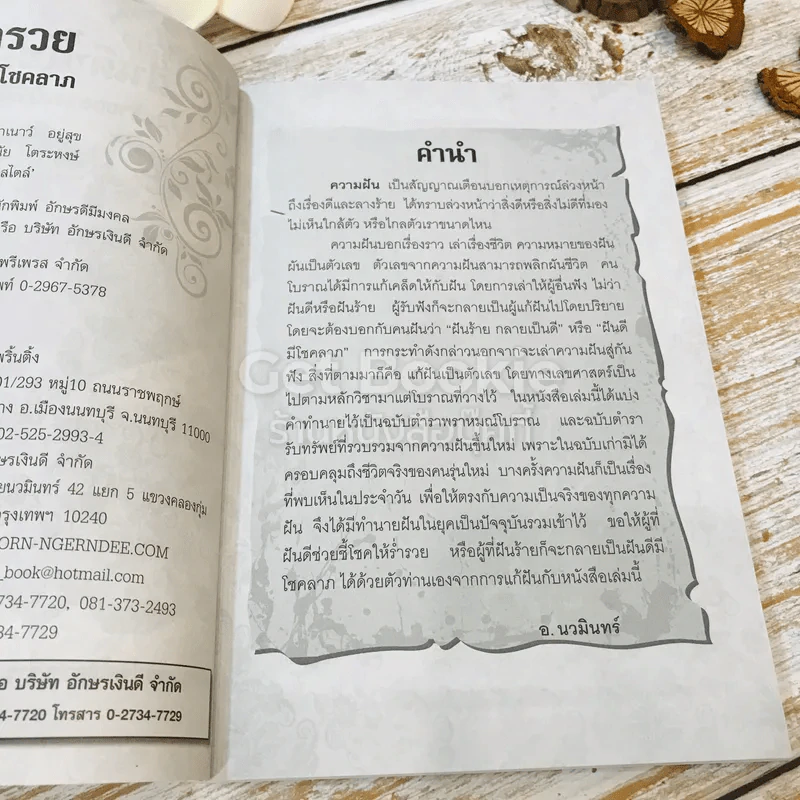 รวย
โชคลาภ
อยู่สุข
โตระหงษ์
สไตล์'
อักษรดีมีมงคล
รือ บริษัท อักษรเงินดี จำกัด
พรีเพรส จำกัด
0-2967-5378
พริ้นติ้ง
01/293 หมู่10 ถนนราชพฤกษ์
อ.เมืองนนทบุรี จ.นนทบุรี 11000
02-525-2993-4
ษรเงินดี จำกัด
ยนวมินทร์ 42 แยก 5 แขวงคลองกุ่ม
รุงเทพฯ 10240
ORN-NGERNDEE.COM
_book@hotmail.com
734-7720, 081-373-2493
34-7729
อ บริษัท อักษรเงินดี จำกัด
4-7720 โทรสาร 0-2734-7729
คำนำ
ความฝัน เป็นสัญญาณเตือนบอกเหตุการณ์ล่วงหน้า
ถึงเรื่องดีและลางร้าย ได้ทราบล่วงหน้าว่าสิ่งดีหรือสิ่งไม่ดีที่มอง
ไม่เห็นใกล้ตัว หรือไกลตัวเราขนาดไหน
ความฝันบอกเรื่องราว เล่าเรื่องชีวิต ความหมายของฝัน
ผันเป็นตัวเลข ตัวเลขจากความฝันสามารถพลิกผันชีวิต คน
โบราณได้มีการแก้เคล็ดให้กับฝัน โดยการเล่าให้ผู้อื่นฟัง ไม่ว่า
ฝันดีหรือฝันร้าย ผู้รับฟังก็จะกลายเป็นผู้แก้ฝันไปโดยปริยาย
โดยจะต้องบอกกับคนฝันว่า "ฝันร้าย กลายเป็นดี" หรือ "ฝันดี
มีโชคลาภ" การกระทำดังกล่าวนอกจากจะเล่าความฝันสู่กัน
ฟัง สิ่งที่ตามมาก็คือ แก้ฝันเป็นตัวเลข โดยทางเลขศาสตร์เป็น
ไปตามหลักวิชามาแต่โบราณที่วางไว้ ในหนังสือเล่มนี้ได้แบ่ง
คำทำนายไว้เป็นฉบับตำราพราหมณ์โบราณ และฉบับตำรา
รับทรัพย์ที่รวบรวมจากความฝันขึ้นใหม่ เพราะในฉบับเก่ามิได้
ครอบคลุมถึงชีวิตจริงของคนรุ่นใหม่ บางครั้งความฝันก็เป็นเรื่อง
ที่พบเห็นในประจำวัน เพื่อให้ตรงกับความเป็นจริงของทุกความ
ฝัน จึงได้มีทำนายฝันในยุคเป็นปัจจุบันรวมเข้าไว้ ขอให้ผู้ที่
ฝันดีช่วยชี้โชคให้ร่ำรวย หรือผู้ที่ฝันร้ายก็จะกลายเป็นฝันดีมี
โชคลาภ ได้ด้วยตัวท่านเองจากการแก้ฝันกับหนังสือเล่มนี้
อ. นวมินทร์